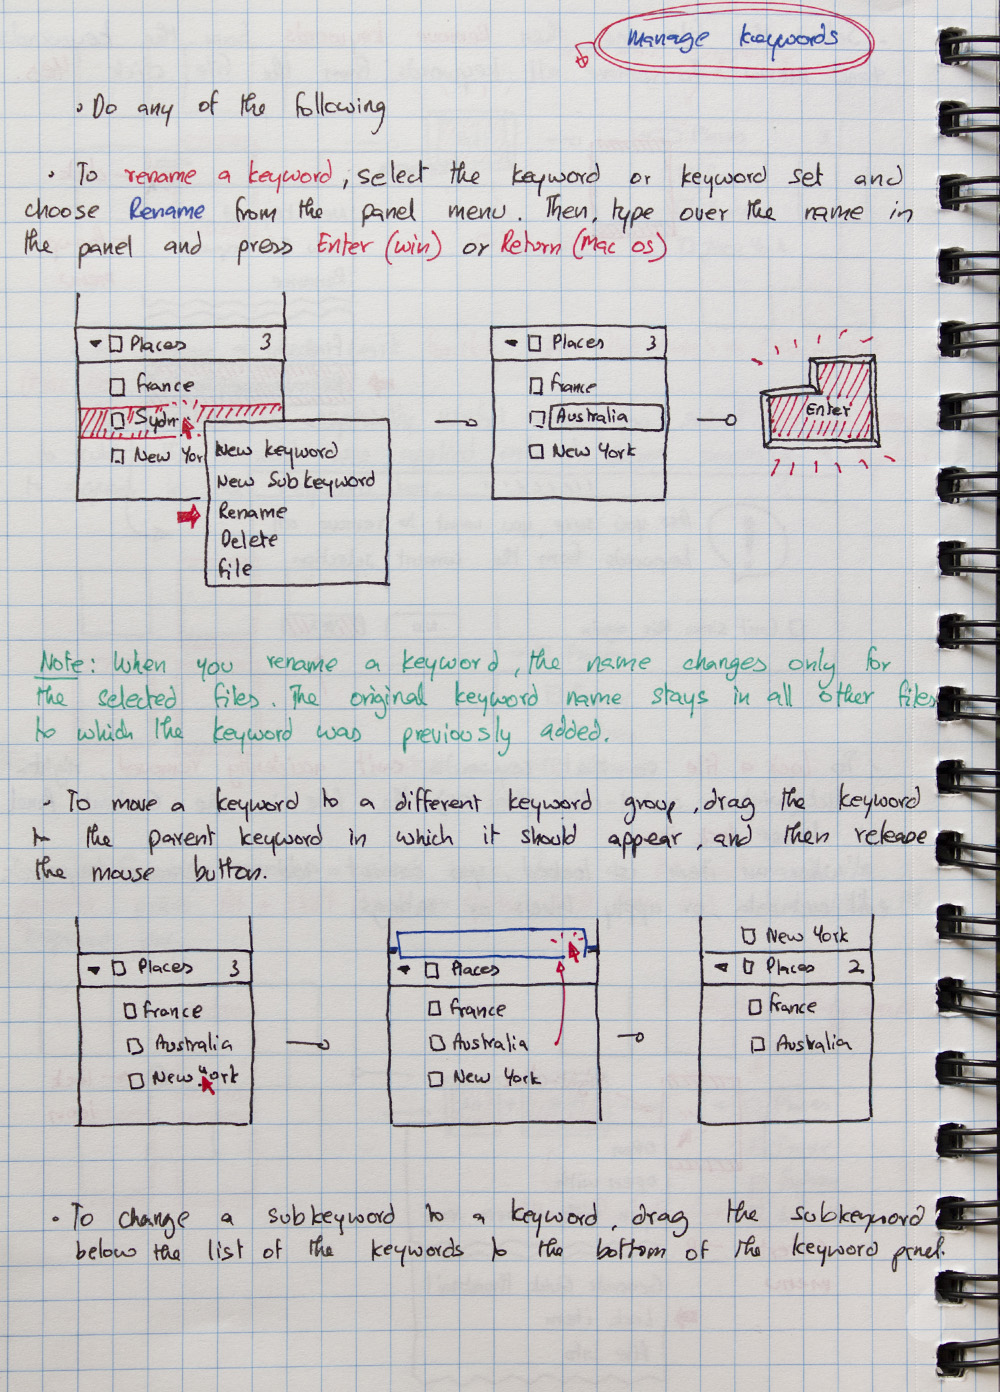 Manage keywords
• Do any of the following
• To rename a keyword, select the keyword or keyword set and
choose Rename from the panel menu. Then, type over the name in
the panel and press Enter (win) or Return (Mac OS)
Places 3
France
Sydn
New Yor
New keyword
New Sub keyword
Rename
Delete
File
Places 3
France
Australia
New York
Enter
Note: When you rename a keyword, the name changes only for
the selected files. The original keyword name stays in all other files
to which the keyword was previously added.
• To move a keyword to a different keyword group, drag the keyword
to the parent keyword in which it should appear, and then release
the mouse button.
Places 3
France
Australia
New York
Places
France
Australia
New York
New York
Places 2
France
Australia
• To change a subkeyword to a keyword, drag the subkeyword
below the list of the keywords to the bottom of the keyword panel.